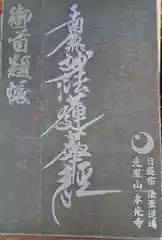 御首題帳
南無妙法蓮華経
日蓮宗 法華道場
光胤山 本光寺